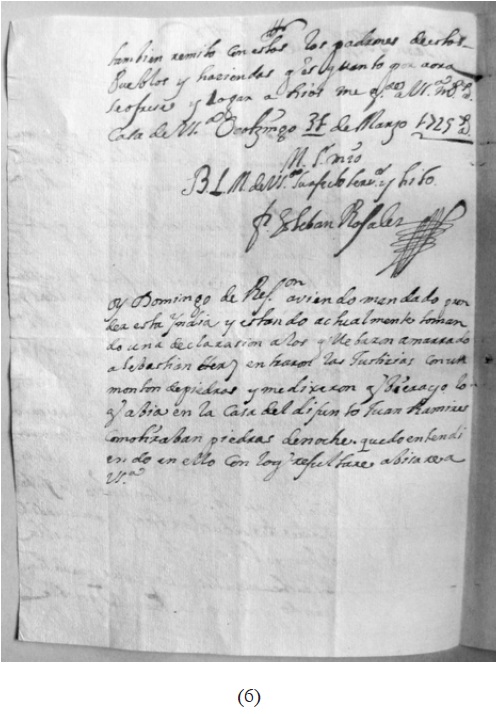 tambien remito con estos los padrones de estos
Pueblos y haciendas q es quanto por aora
se ofrese y Rogar a Dios me g.e a V.a m.s a.s
Casa de V.a Domingo 31 de Marzo 1725 a.s
M. P. nro
B L M de V.a su afecto serv.or y hijo
fr. Esteban Rosales
oy Domingo de Res.on aviendo mandado
esta Yndia y estando actualmente toman
do una declarasion a los q llebaron amarrado
a Sebastian entraron las Justicias con un
monton de piedras y me dixeron q
q abia en la Casa del difunto Juan Ramires
como tiraban piedras de noche. quedo entendi
endo en ello con lo q resultare abisare a
V.a
(6)